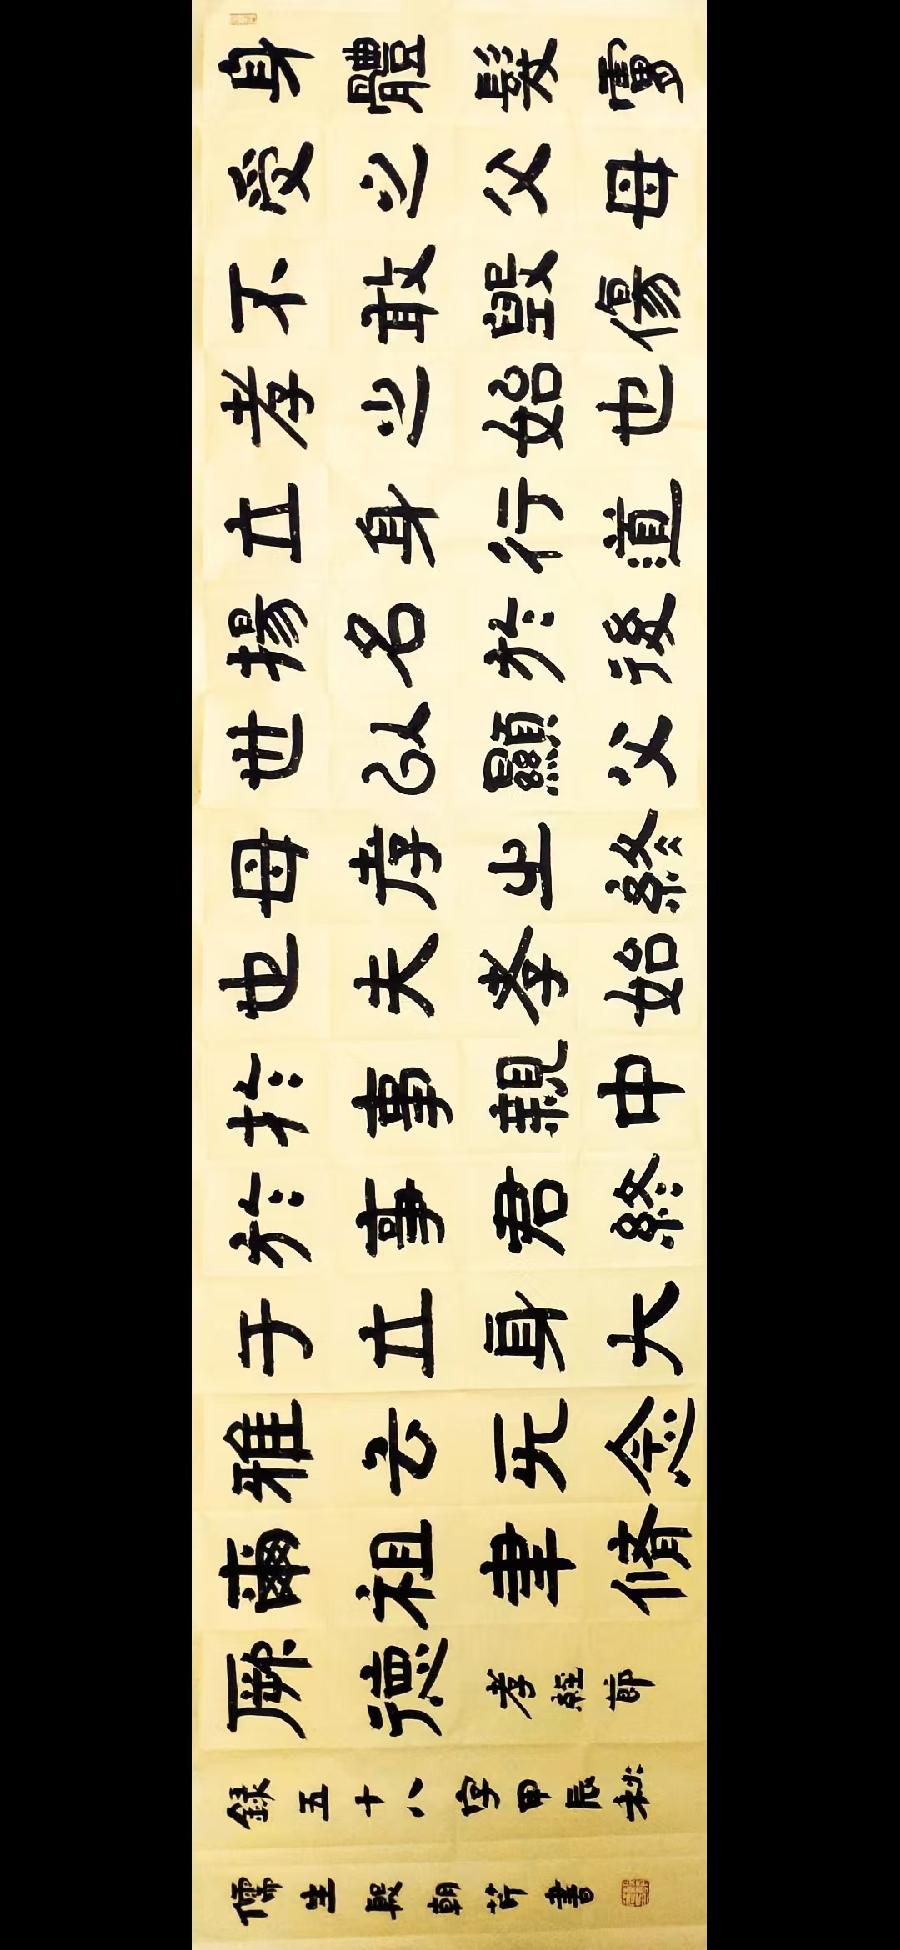 身體髮膚
受之父母
不敢毀傷
孝之始也
立身行道
揚名於後
世以顯父
母孝之終
也夫孝始
於事親中
於事君終
于立身大
雅云无念
爾祖聿脩
厥德孝經節
録五十八字甲辰秋
儒生殷朝芹書